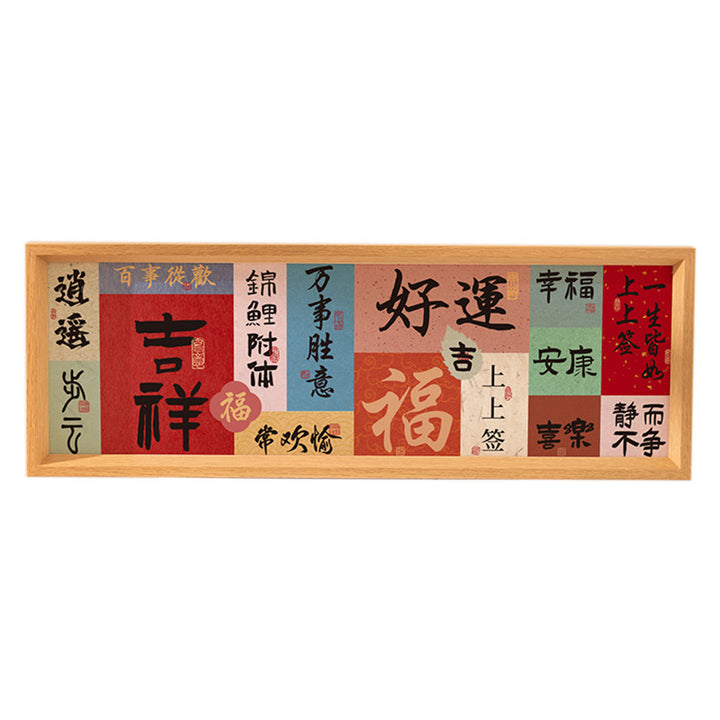 逍遥
步云
百事從歡
吉祥
福
錦鯉附体
万事胜意
常欢愉
好運
吉
福
上上签
幸福
安康
喜樂
一生皆如
上上签
而争
静不